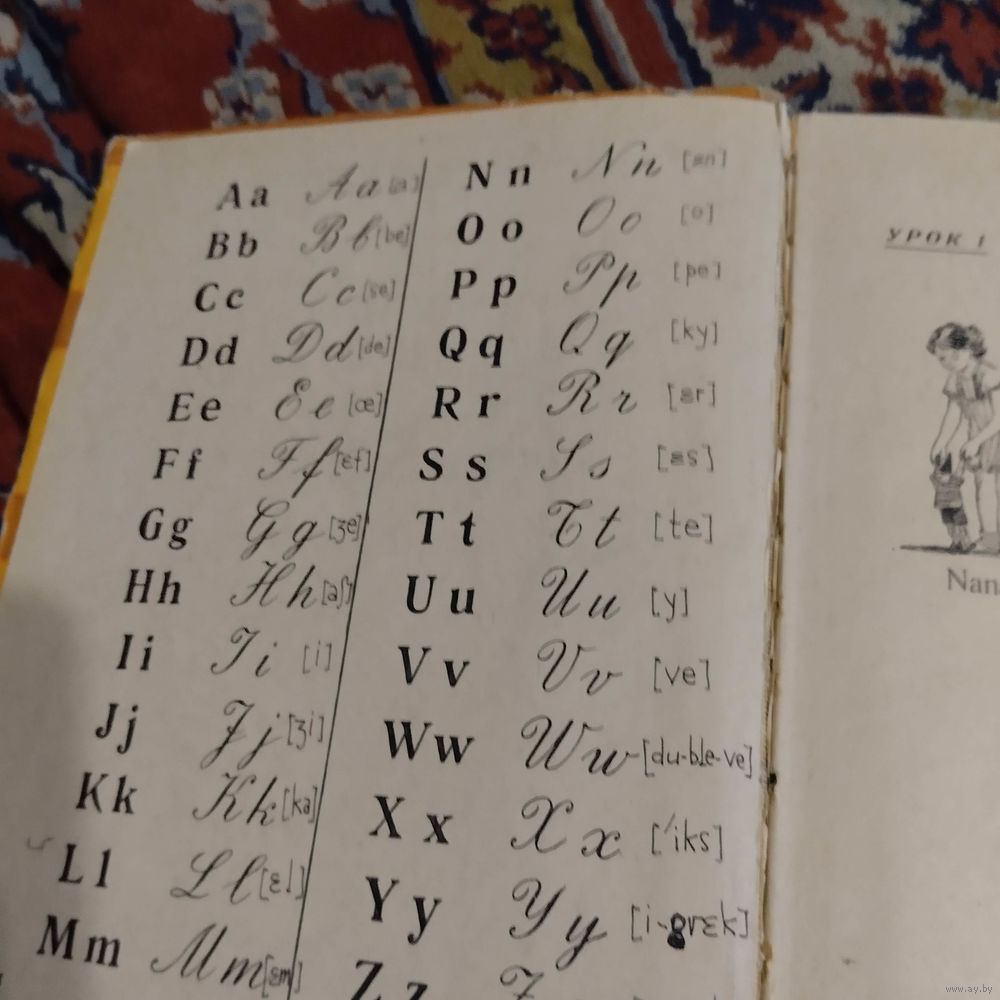 Aa Aa [a]
Bb Bb [be]
Cc Cc [se]
Dd Dd [de]
Ee Ee [œ]
Ff Ff [ɛf]
Gg Gg [ʒe]
Hh Hh [aʃ]
Ii Ii [i]
Jj Jj [ʒi]
Kk Kk [ka]
Ll Ll [ɛl]
Mm Mm [ɛm]
Nn Nn [ɛn]
Oo Oo [o]
Pp Pp [pe]
Qq Qq [ky]
Rr Rr [ɛr]
Ss Ss [ɛs]
Tt Tt [te]
Uu Uu [y]
Vv Vv [ve]
Ww Ww [du-ble-ve]
Xx Xx ['iks]
Yy Yy [i-grɛk]
Zz Z
УРОК 1
Nan
www.ay.by